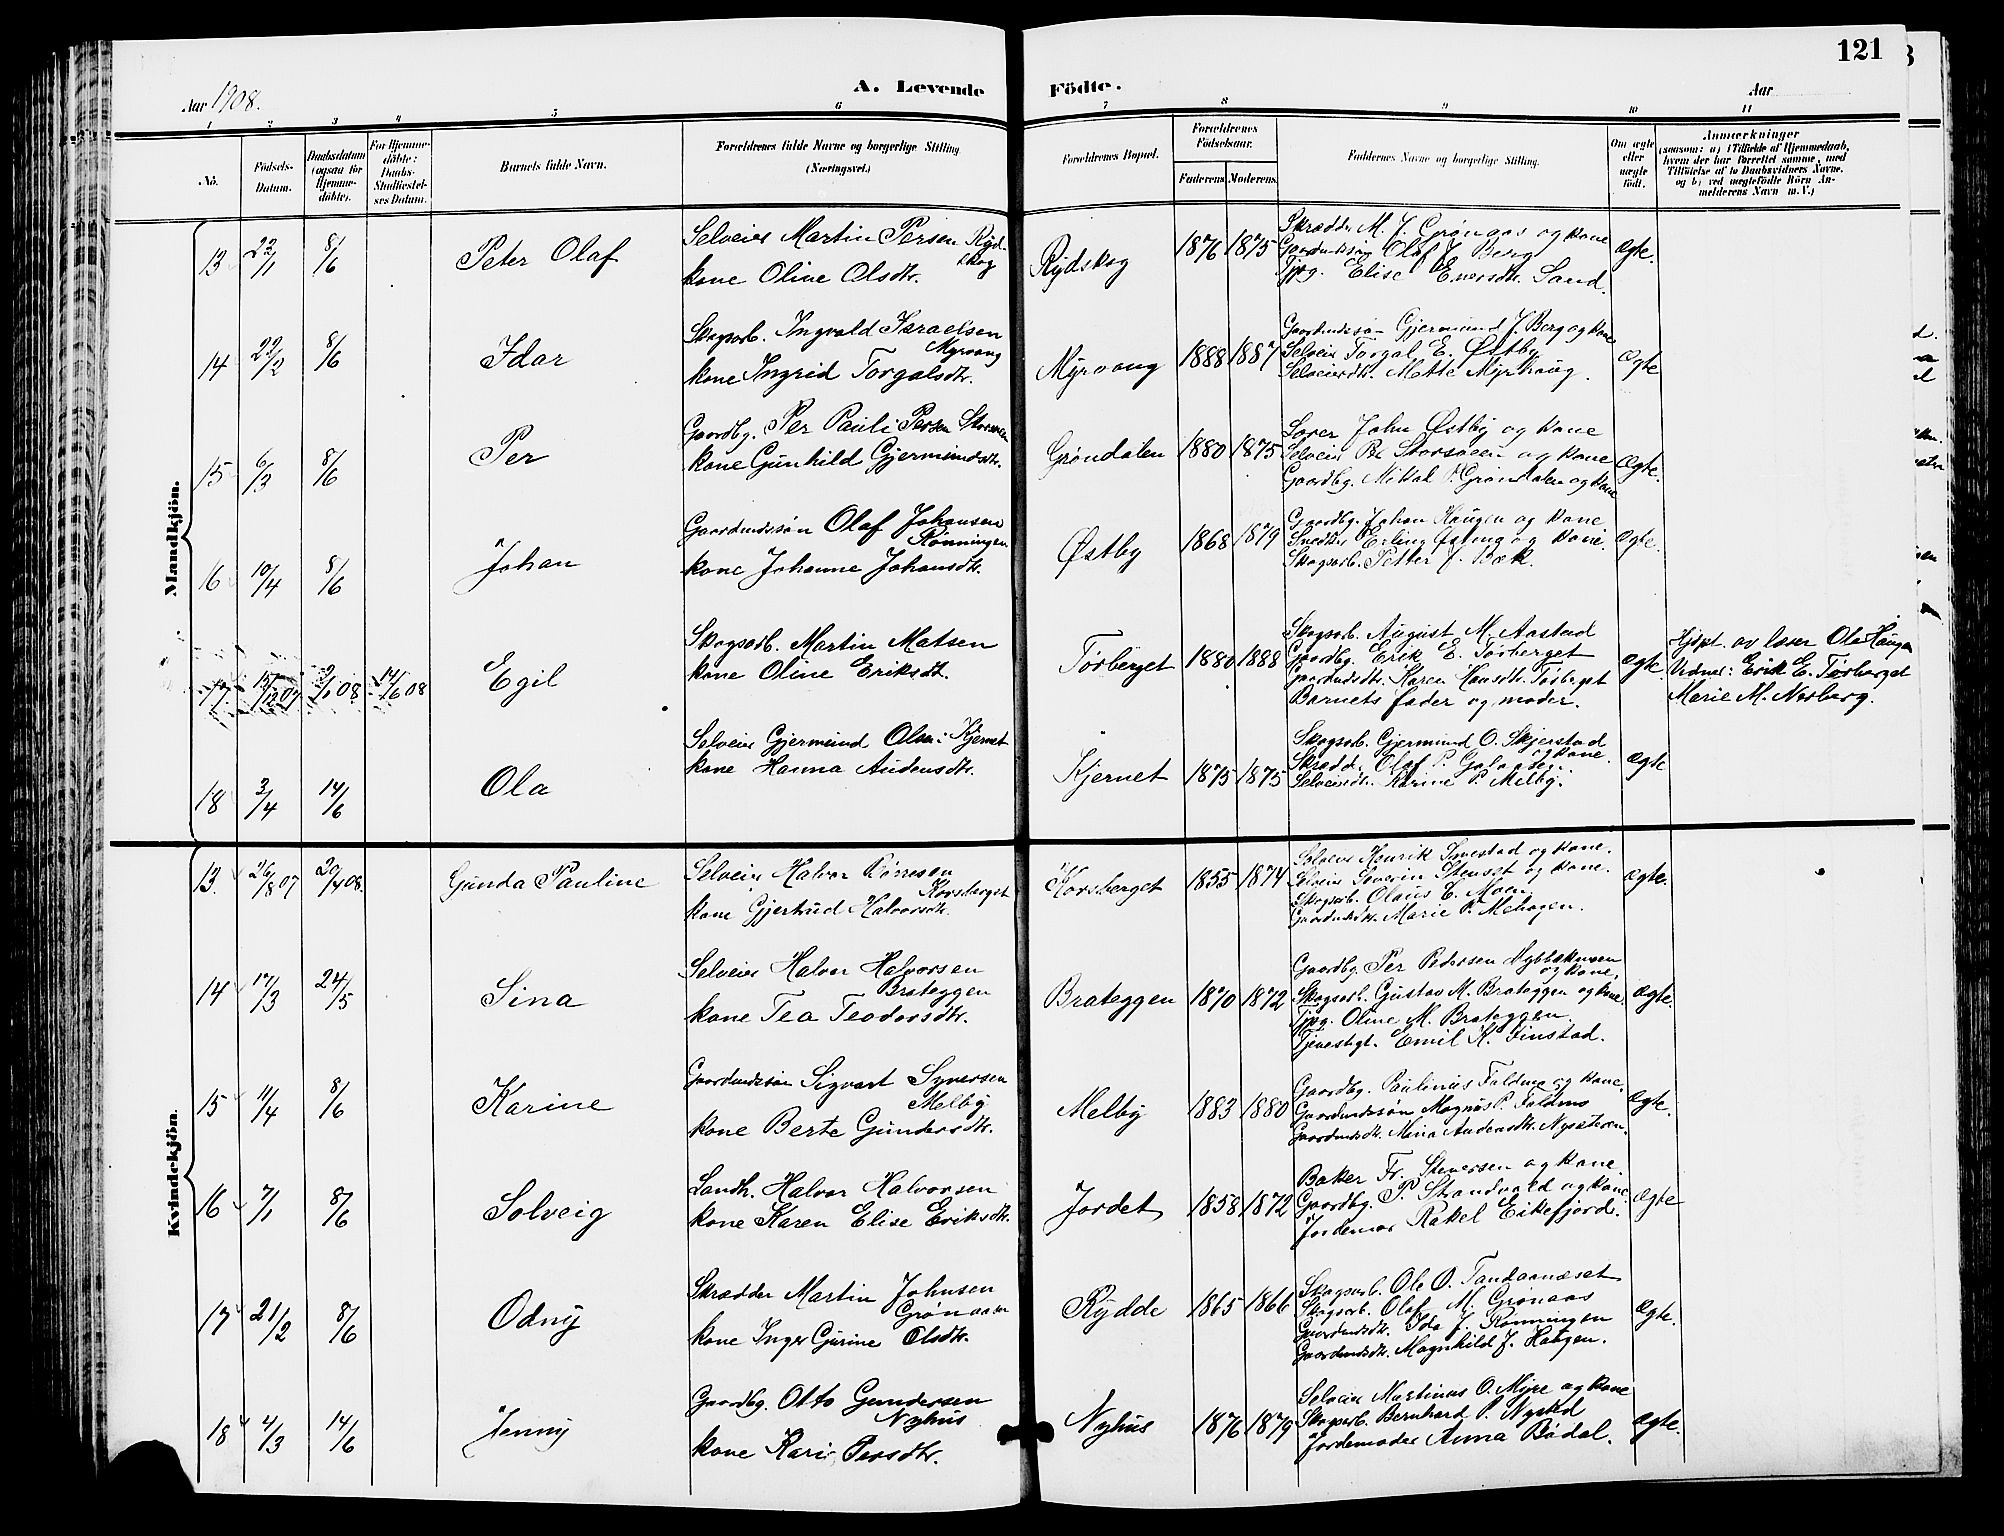 121
Aar 1908.
A. Levende Födte.
Aar
1 2 3 4 5 6 7 8 9 10 11
No.
Födsels-Datum.
Daabsdatum (ogsaa for Hjemme-döbte).
For Hjemme-döbte: Daabs-Stadfæstel-ses Datum.
Barnets fulde Navn.
Forældrenes fulde Navne og borgerlige Stilling (Næringsvei.)
Forældrenes Bopæl.
Forældrenes Födselsaar.
Faderens. Moderens.
Faddernes Navne og borgerlige Stilling.
Om ægte eller uægte født.
Anmærkninger
(saasom: a) i Tilfælde af Hjemmedaab,
hvem der har forrettet samme, med
Tilföielse af to Daabsvidners Navne.
og b) ved uægtefödte Börn An-
melderens Navn m. V.)
Mandkjön.
13 22/1 8/6 Peter Olaf
Selveier Martin Persen Ryd-
skog
kone Oline Olsdtr.
Rydskog 1876 1875
Skrædder M. J. Grønaas og kone
Gaardmdssøn Olaf J. Berg
Tjpg. Elise Eversdtr. Sand.
ægte.
14 22/2 8/6 Idar
Skogsarb. Ingvald Israelsen
Myrvang
kone Ingrid Torgalsdtr.
Myrvang 1888 1887
Gaardmdssøn Gjermund J. Berg og kone
Selveier Torgal E. Østby
Selveierdtr. Mette Myrhaug.
ægte
15 6/3 8/6 Per
Gaardbg. Per Pauli Persen
kone Gunhild Gjermundsdtr.
Grøndalen 1880 1875
Lærer John Østby og kone
Selveier Per Storsveen og kone
Gaardbg. Mikal P. Grøndalen og kone
ægte.
16 10/4 8/6 Johan
Gaardmdssøn Olaf Johansen
Rønningen
kone Johanne Johansdtr.
Østby 1868 1879
Gaardbg. Johan Haugen og kone
Snedker Erling Østeng og kone.
Skogsarb. Petter J. Bæk.
ægte.
17. 15/12 07 2/1 08 14/6 08 Egil
Skogsarb. Martin Matsen
kone Oline Eriksdt.
Tørberget 1880 1888
Skogsarb. August M. Aastad
Gaardbg. Erik E. Tørberget
Gaardmdsdtr. Karen Hansdtr. Tørberget
Barnets fader og moder.
ægte.
Hjdpt. av lærer Ola Haugen
Vidner: Erik E. Tørberget
Marie M. Norberg.
18 3/4 14/6 Ola
Selveier Gjermund Olsen Kjernet
kone Hanna Audensdtr.
Kjernet 1875 1875
Skogsarb. Gjermund O. Skjerstad
og kone.
Skrædd. Olaf P. Galaaden.
Selveierdtr. Karine P. Melby.
ægte
Kvindekjön.
13. 26/8 07 20/4 08. Gunda Pauline
Selveier Halvor Tønnesen
Korsberget
kone Gjertrud Halvorsdtr.
Korsberget 1855 1874
Selveier Henrik Smestad og kone.
Selveier Severin Stenset og kone.
Skogsarb. Olaus E. Moen.
Gaardmdsdtr. Marie P. Mehagen.
ægte.
14 17/3 24/5 Sina
Selveier Halvor Halvorsen
Brateggen
kone Tea Teodorsdtr.
Brateggen 1870 1872
Gaardbg. Per Pedersen Nybækmoen
og kone.
Skogsarb. Gustav M. Brateggen og kone.
Tjpg. Oline M. Brateggen.
Tjenestgt. Emil K. Finstad.
ægte.
15 11/4 8/6 Karine
Gaardmdssøn Sigvart Syversen
Melby
kone Berte Gundersdtr.
Melby 1883 1880
Gaardbg. Paulinus Faldmo og kone.
Gaardmdssøn Magnus P. Faldmo
Gaardmdsdtr. Mina Audensdtr. Nysæteren.
ægte.
16 7/1 8/6 Solveig
Landh. Halvor Halvorsen
kone Karen Elise Eriksdtr.
Jordet 1858 1872
Baker Fr. Stenersen og kone.
Gaardbg. P. Strandvold og kone.
Jordemor Rakel Eikefjord.
ægte
17 21/2 8/6 Odny
Skrædder Martin Johnsen
Grønaasen
kone Inger Gurine Olsdtr.
Rydde 1865 1866
Skogsarb. Ole O. Tandaanæset
Skogsarb. Olaf M. Grønaas
Gaardmdsdtr. Ida J. Rønningen
Gaardmdsdtr. Magnhild J. Haugen.
ægte.
18 4/3 14/6 Jenny
Gaardbg. Otto Gundersen
Nyhus
kone Kari Persdtr.
Nyhus 1876 1879
Selveier Martinus O. Myre og kone
Skogsarb. Bernhard P. Nysted
Jordemoder Anna Bødal.
ægte.